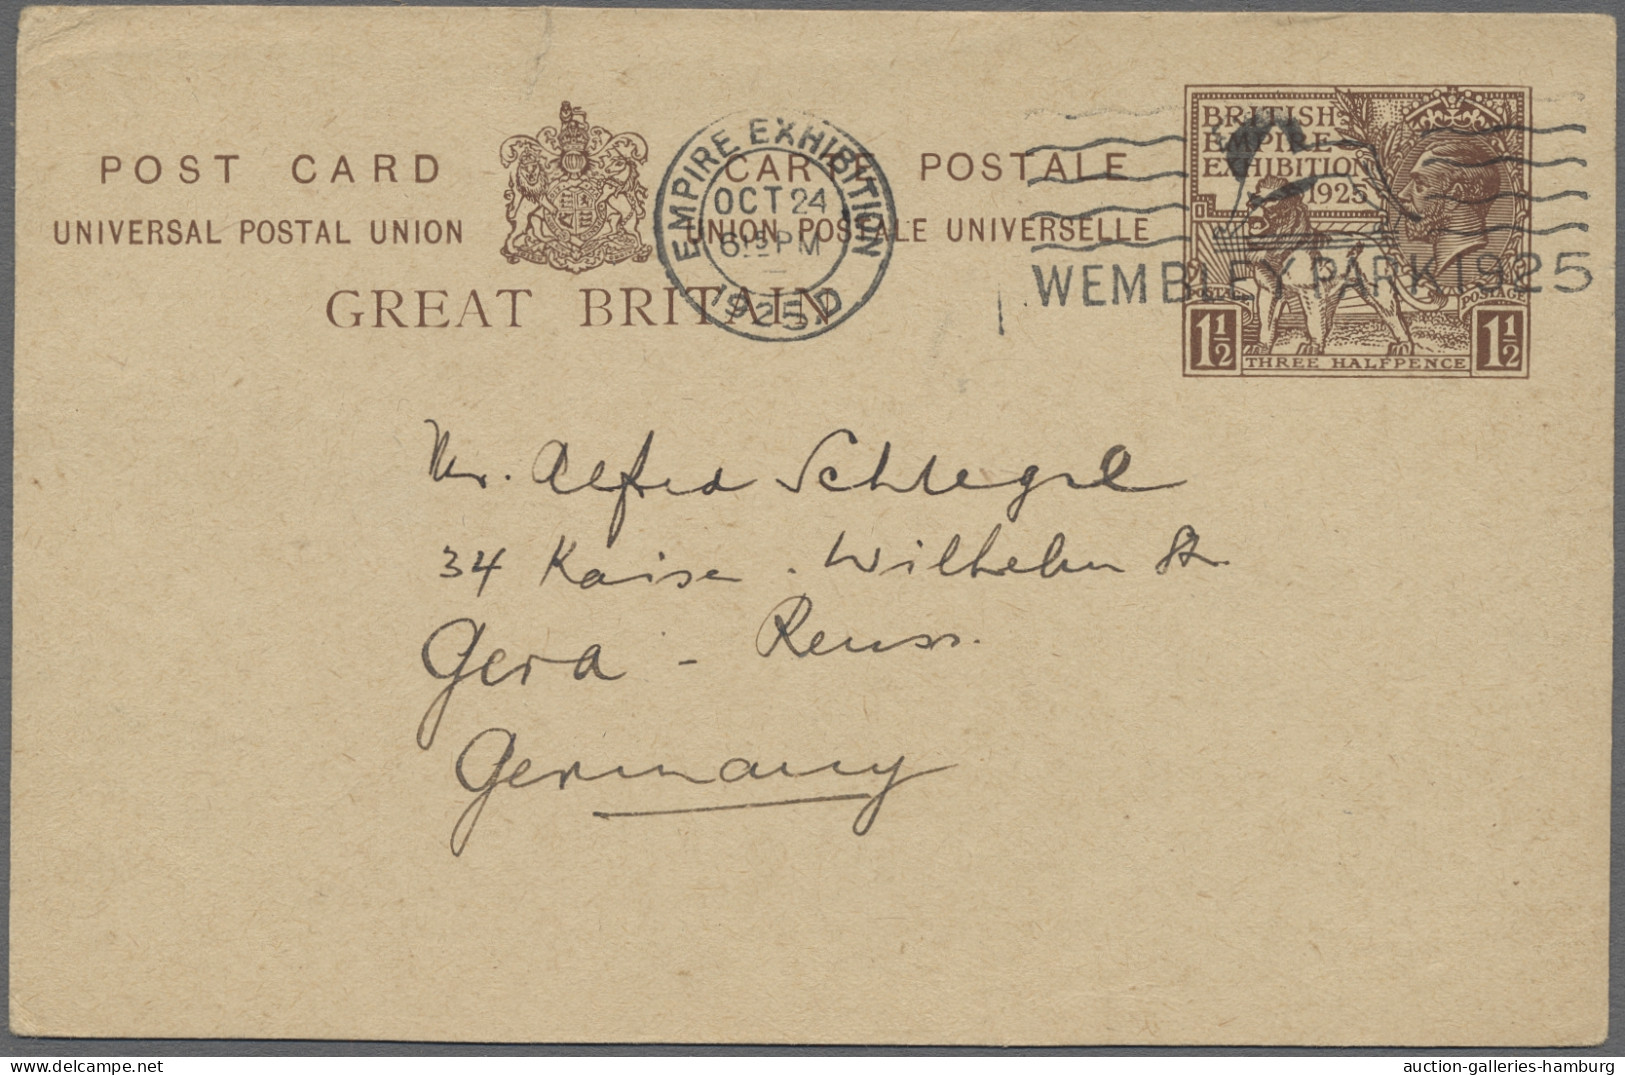 POST CARD CARTE POSTALE
UNIVERSAL POSTAL UNION UNION POSTALE UNIVERSELLE
GREAT BRITAIN
EMPIRE EXHIBITION
OCT 24
615 PM
1925. D
WEMBLEY PARK 1925
BRITISH
EMPIRE
EXHIBITION
1925
POSTAGE POSTAGE
1½ THREE HALFPENCE 1½
Mr. Alfred Schlegel
34 Kaiser. Wilhelm St.
Gera - Reuss.
Germany
auction-galleries-hamburg